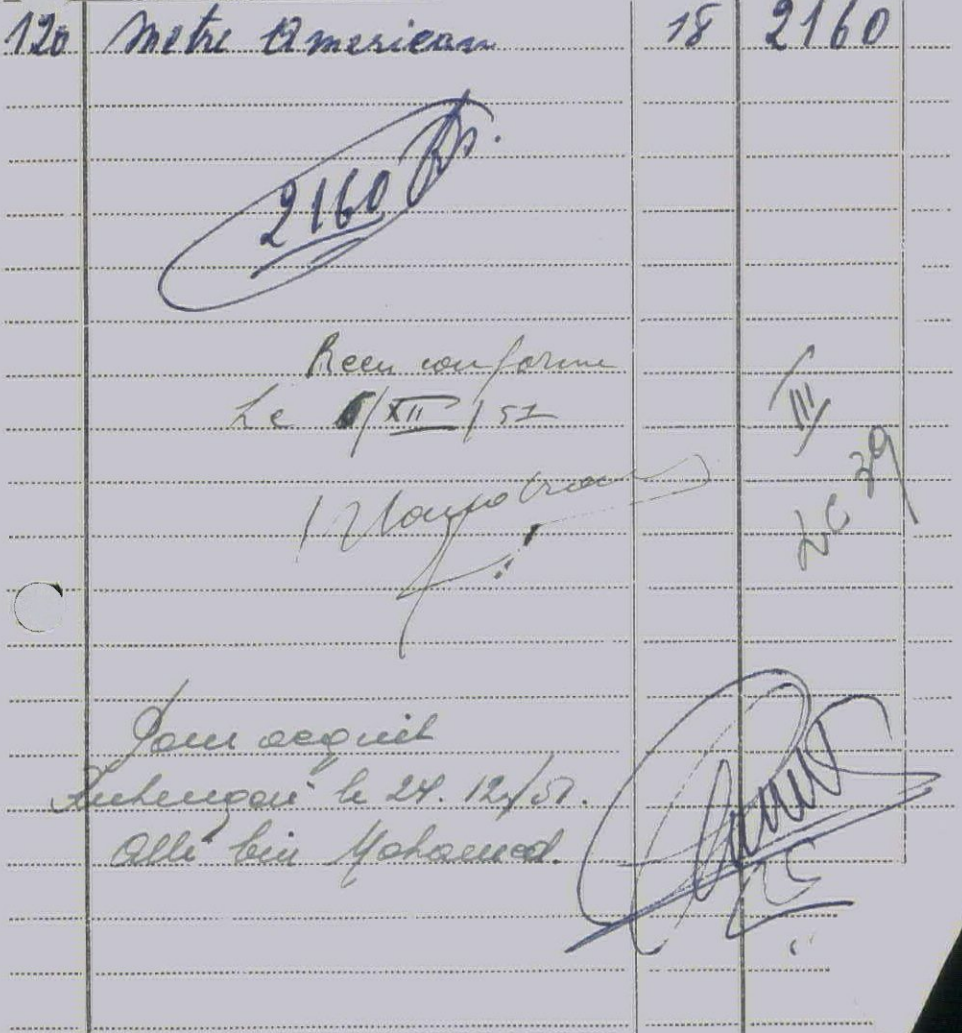 120 Metre American 18 2160
2160 Frs.
Recu conforme
Le 6/XII/51
III
20 29
Pour acquit
Ruhengeri le 24. 12/51.
Alli bin Mohamed.